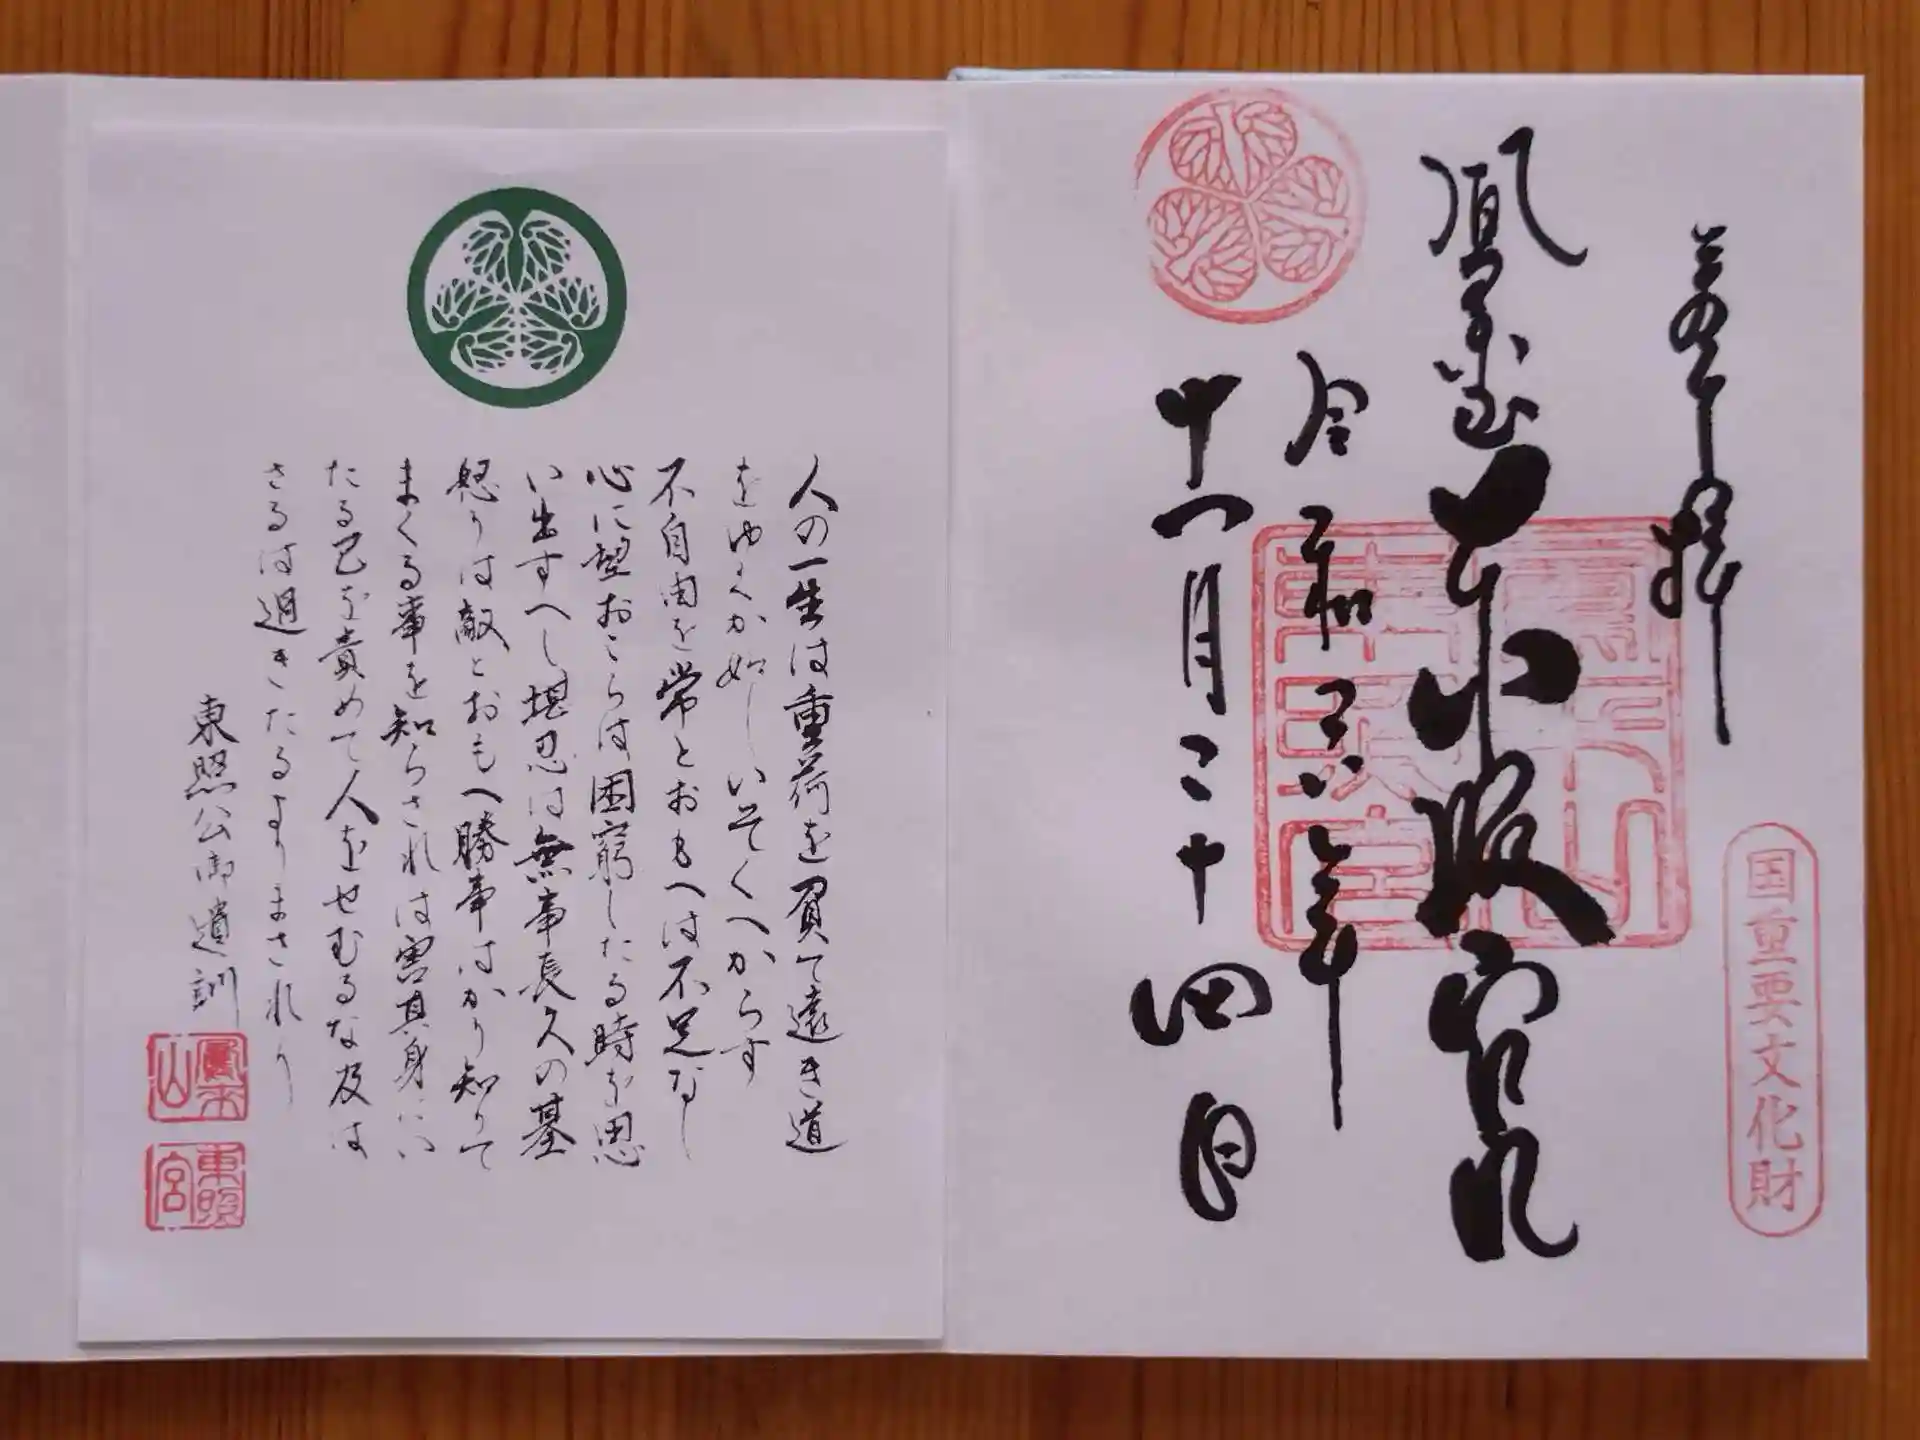 奉拝
国重要文化財
鳳来山東照宮
令和六年
十一月二十四日
人の一生は重荷を負て遠き道
をゆくか如しいそくへからす
不自由を常とおもへは不足なし
心に望おこらは困窮したる時を思
い出すへし堪忍は無事長久の基
怒りは敵とおもへ勝事はかり知りて
まくる事を知らされは害其身にい
たる己を責めて人をせむるな及は
さるは過きたるよりまされり
東照公御遺訓
鳳来
山
東照
宮